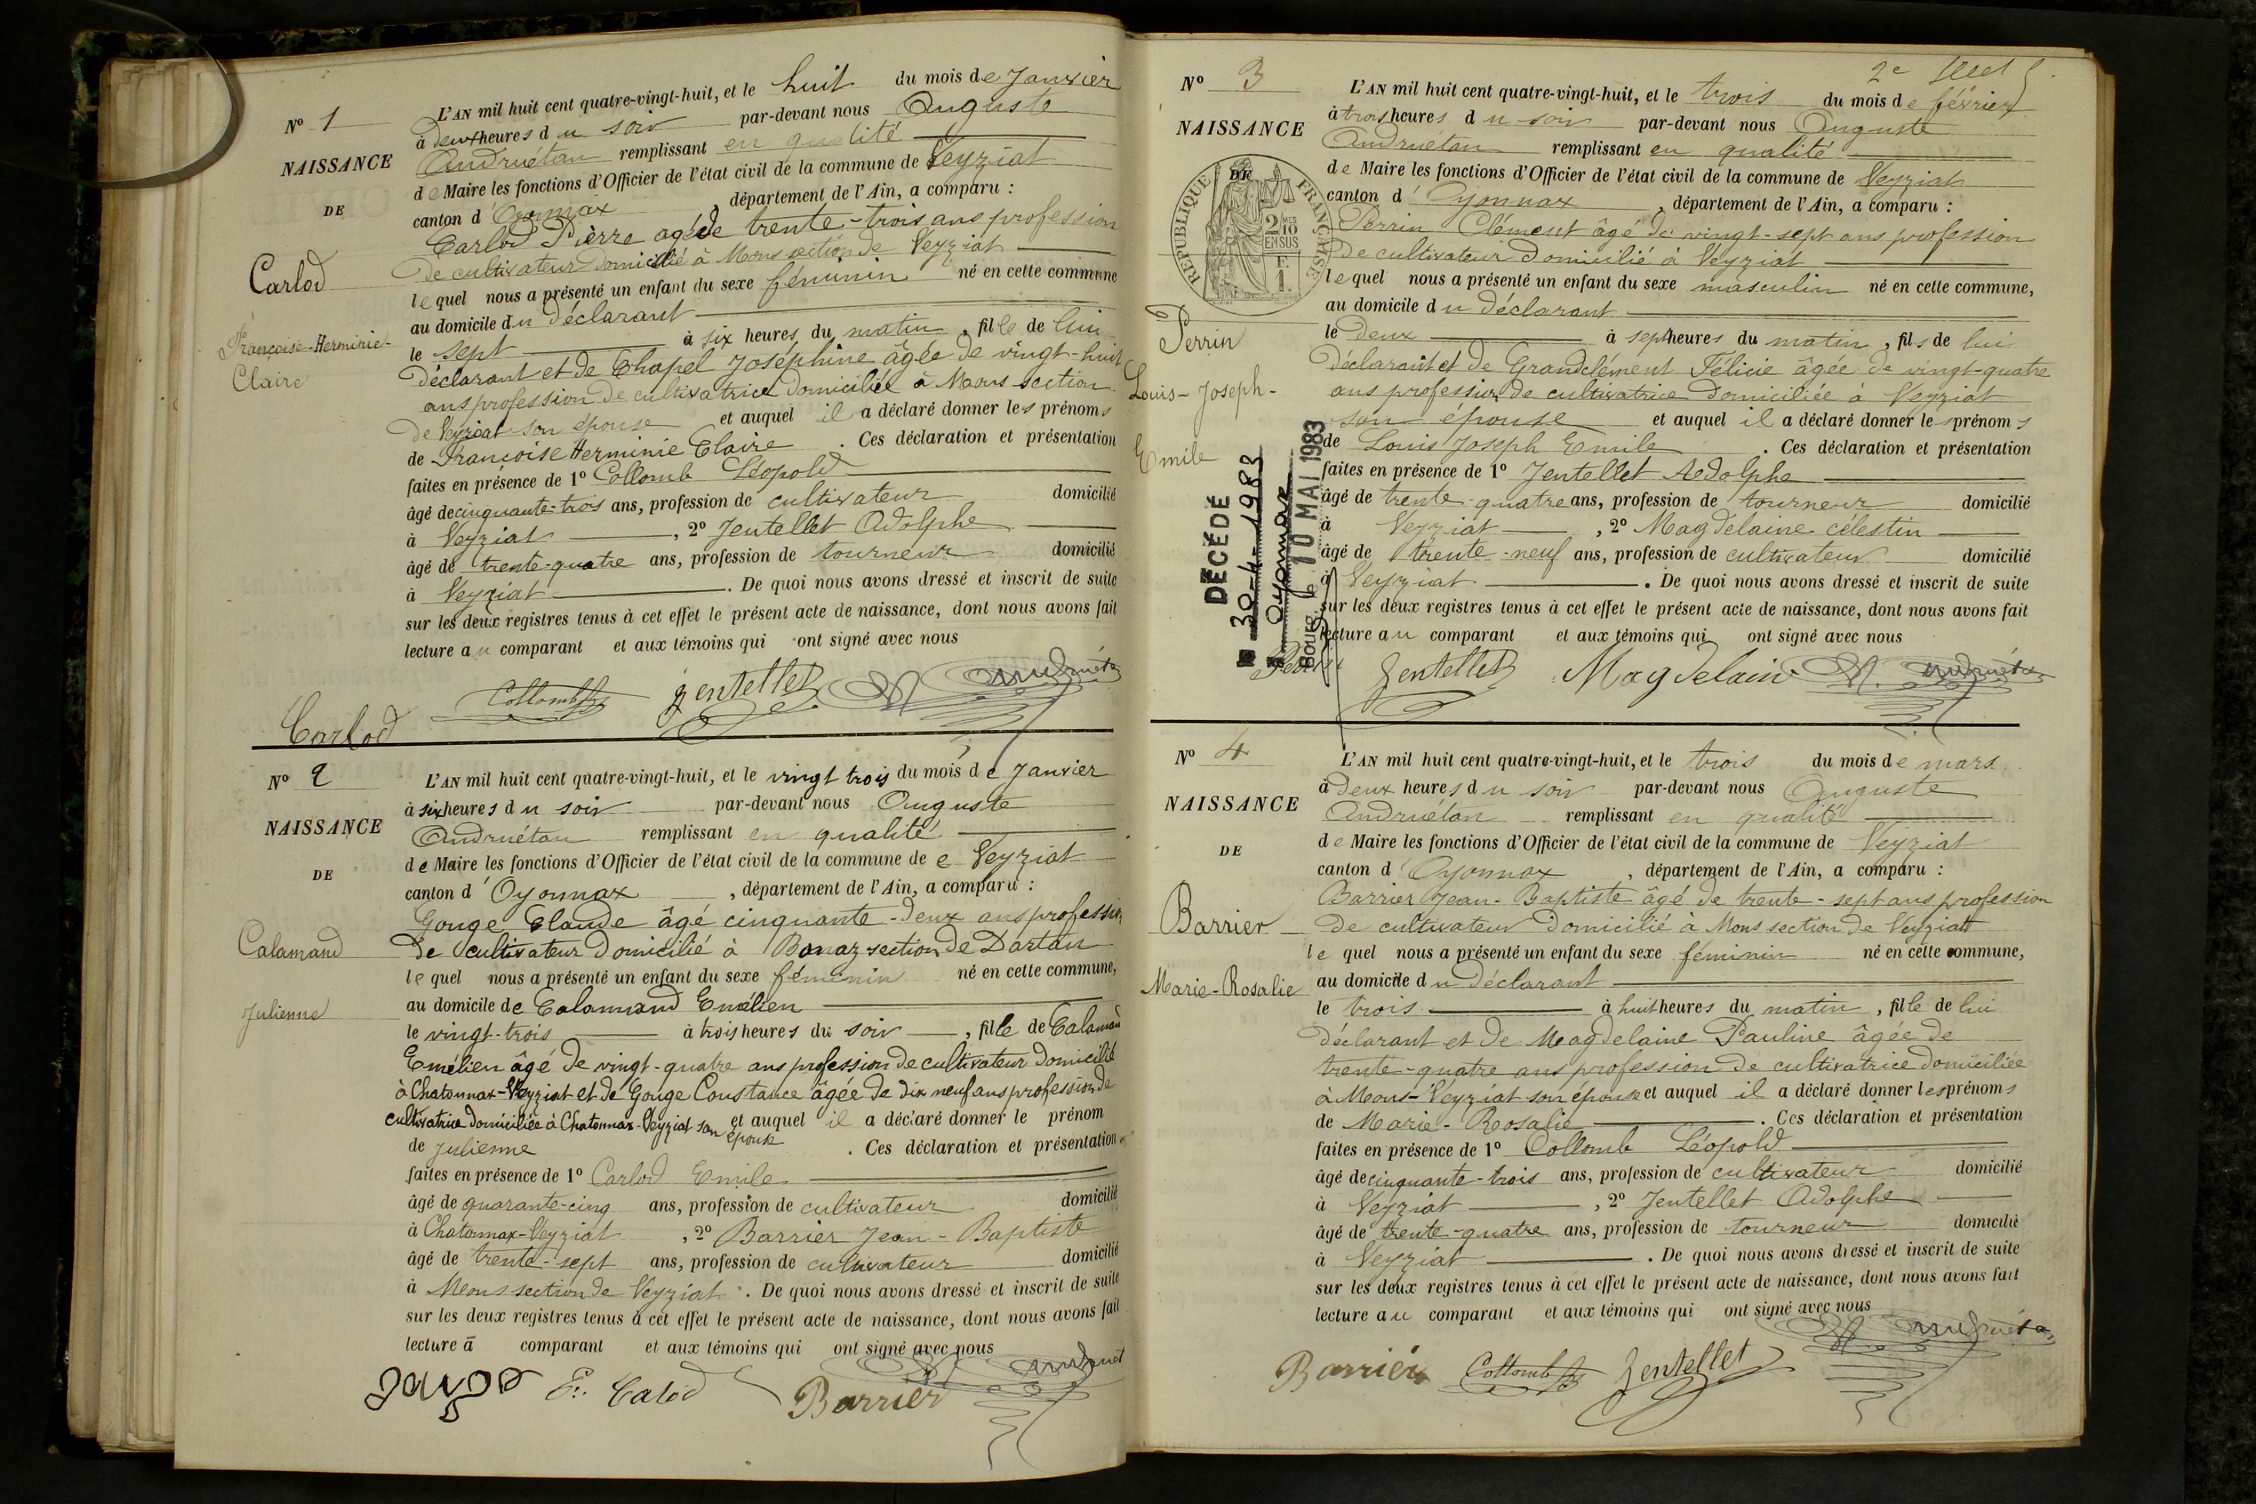 N° 1
NAISSANCE
DE
Carlod
Françoise-Herminie-
Claire
L'AN mil huit cent quatre-vingt-huit, et le huit du mois de Janvier
à deux heures du soir par-devant nous Auguste
Andruétan remplissant en qualité
de Maire les fonctions d'Officier de l'état civil de la commune de Veyziat
canton d'Oyonnax, département de l'Ain, a comparu :
Carlod Pierre agé de trente-trois ans profession
de cultivateur domicilié à Mons section de Veyziat
lequel nous a présenté un enfant du sexe féminin né en cette commune
au domicile du déclarant
le sept à six heures du matin, fille de lui
déclarant et de Chapel Joséphine âgée de vingt-huit
ans profession de cultivatrice domiciliée à Mons section
de Veyziat son épouse et auquel il a déclaré donner les prénoms
de Françoise Herminie Claire. Ces déclaration et présentation
faites en présence de 1° Collomb Léopold
âgé de cinquante-trois ans, profession de cultivateur domicilié
à Veyziat, 2° Jentellet Adolphe
âgé de trente-quatre ans, profession de tourneur domicilié
à Veyziat. De quoi nous avons dressé et inscrit de suite
sur les deux registres tenus à cet effet le présent acte de naissance, dont nous avons fait
lecture au comparant et aux témoins qui ont signé avec nous
Collomb Jentellet A. Andruétan
Carlod
N° 2
NAISSANCE
DE
Calamand
Julienne
L'AN mil huit cent quatre-vingt-huit, et le vingt trois du mois de Janvier
à six heures du soir par-devant nous Auguste
Andruétan remplissant en qualité
de Maire les fonctions d'Officier de l'état civil de la commune de e Veyziat
canton d'Oyonnax, département de l'Ain, a comparu :
Gouge Claude âgé cinquante-deux ans profession
de cultivateur domicilié à Bonaz section de Dortan
lequel nous a présenté un enfant du sexe féminin né en cette commune,
au domicile de Calamand Emélien
le vingt-trois à trois heures du soir, fille de Calamand
Emélien âgé de vingt-quatre ans profession de cultivateur domicilié
à Chatonnax-Veyziat et de Gouge Constance âgée de dix neuf ans profession de
cultivatrice domiciliée à Chatonnax-Veyziat son épouse et auquel il a déclaré donner le prénom
de Julienne. Ces déclaration et présentation
faites en présence de 1° Carlod Emile
âgé de quarante-cinq ans, profession de cultivateur domicilié
à Chatonnax-Veyziat, 2° Barrier Jean-Baptiste
âgé de trente-sept ans, profession de cultivateur domicilié
à Mons section de Veyziat. De quoi nous avons dressé et inscrit de suite
sur les deux registres tenus à cet effet le présent acte de naissance, dont nous avons fait
lecture à comparant et aux témoins qui ont signé avec nous
E. Calod Barrier A. Andruétan
2e
N° 3
NAISSANCE
RÉPUBLIQUE FRANÇAISE
DE
2/10 EN SUS
F. 1.
Perrin
Louis-Joseph-
Emile
DÉCÉDÉ
30-4-1983
Oyonnax
Bourg le 10 MAI 1983
L'AN mil huit cent quatre-vingt-huit, et le trois du mois de février
à trois heures du soir par-devant nous Auguste
Andruétan remplissant en qualité
de Maire les fonctions d'Officier de l'état civil de la commune de Veyziat
canton d'Oyonnax, département de l'Ain, a comparu :
Perrin Clément âgé de vingt-sept ans profession
de cultivateur domicilié à Veyziat
lequel nous a présenté un enfant du sexe masculin né en cette commune,
au domicile du déclarant
le deux à sept heures du matin, fils de lui
déclarant et de Grandclément Félicie âgée de vingt-quatre
ans profession de cultivatrice domiciliée à Veyziat
son épouse et auquel il a déclaré donner les prénoms
de Louis Joseph Emile. Ces déclaration et présentation
faites en présence de 1° Jentellet Adolphe
âgé de trente quatre ans, profession de tourneur domicilié
à Veyziat, 2° Magdelaine célestin
âgé de trente-neuf ans, profession de cultivateur domicilié
à Veyziat. De quoi nous avons dressé et inscrit de suite
sur les deux registres tenus à cet effet le présent acte de naissance, dont nous avons fait
lecture au comparant et aux témoins qui ont signé avec nous
Perrin Jentellet Magdelain A. Andruétan
N° 4
NAISSANCE
DE
Barrier
Marie-Rosalie
L'AN mil huit cent quatre-vingt-huit, et le trois du mois de mars
à deux heures du soir par-devant nous Auguste
Andruétan remplissant en qualité
de Maire les fonctions d'Officier de l'état civil de la commune de Veyziat
canton d'Oyonnax, département de l'Ain, a comparu :
Barrier Jean-Baptiste âgé de trente-sept ans profession
de cultivateur domicilié à Mons section de Veyziat
lequel nous a présenté un enfant du sexe féminin né en cette commune,
au domicile du déclarant
le trois à huit heures du matin, fille de lui
déclarant et de Magdelaine Pauline âgée de
trente-quatre ans profession de cultivatrice domiciliée
à Mons-Veyziat son épouse et auquel il a déclaré donner les prénoms
de Marie-Rosalie. Ces déclaration et présentation
faites en présence de 1° Collomb Léopold
âgé de cinquante-trois ans, profession de cultivateur domicilié
à Veyziat, 2° Jentellet Adolphe
âgé de trente-quatre ans, profession de tourneur domicilié
à Veyziat. De quoi nous avons dressé et inscrit de suite
sur les deux registres tenus à cet effet le présent acte de naissance, dont nous avons fait
lecture au comparant et aux témoins qui ont signé avec nous
Barrier Collomb Jentellet A. Andruétan